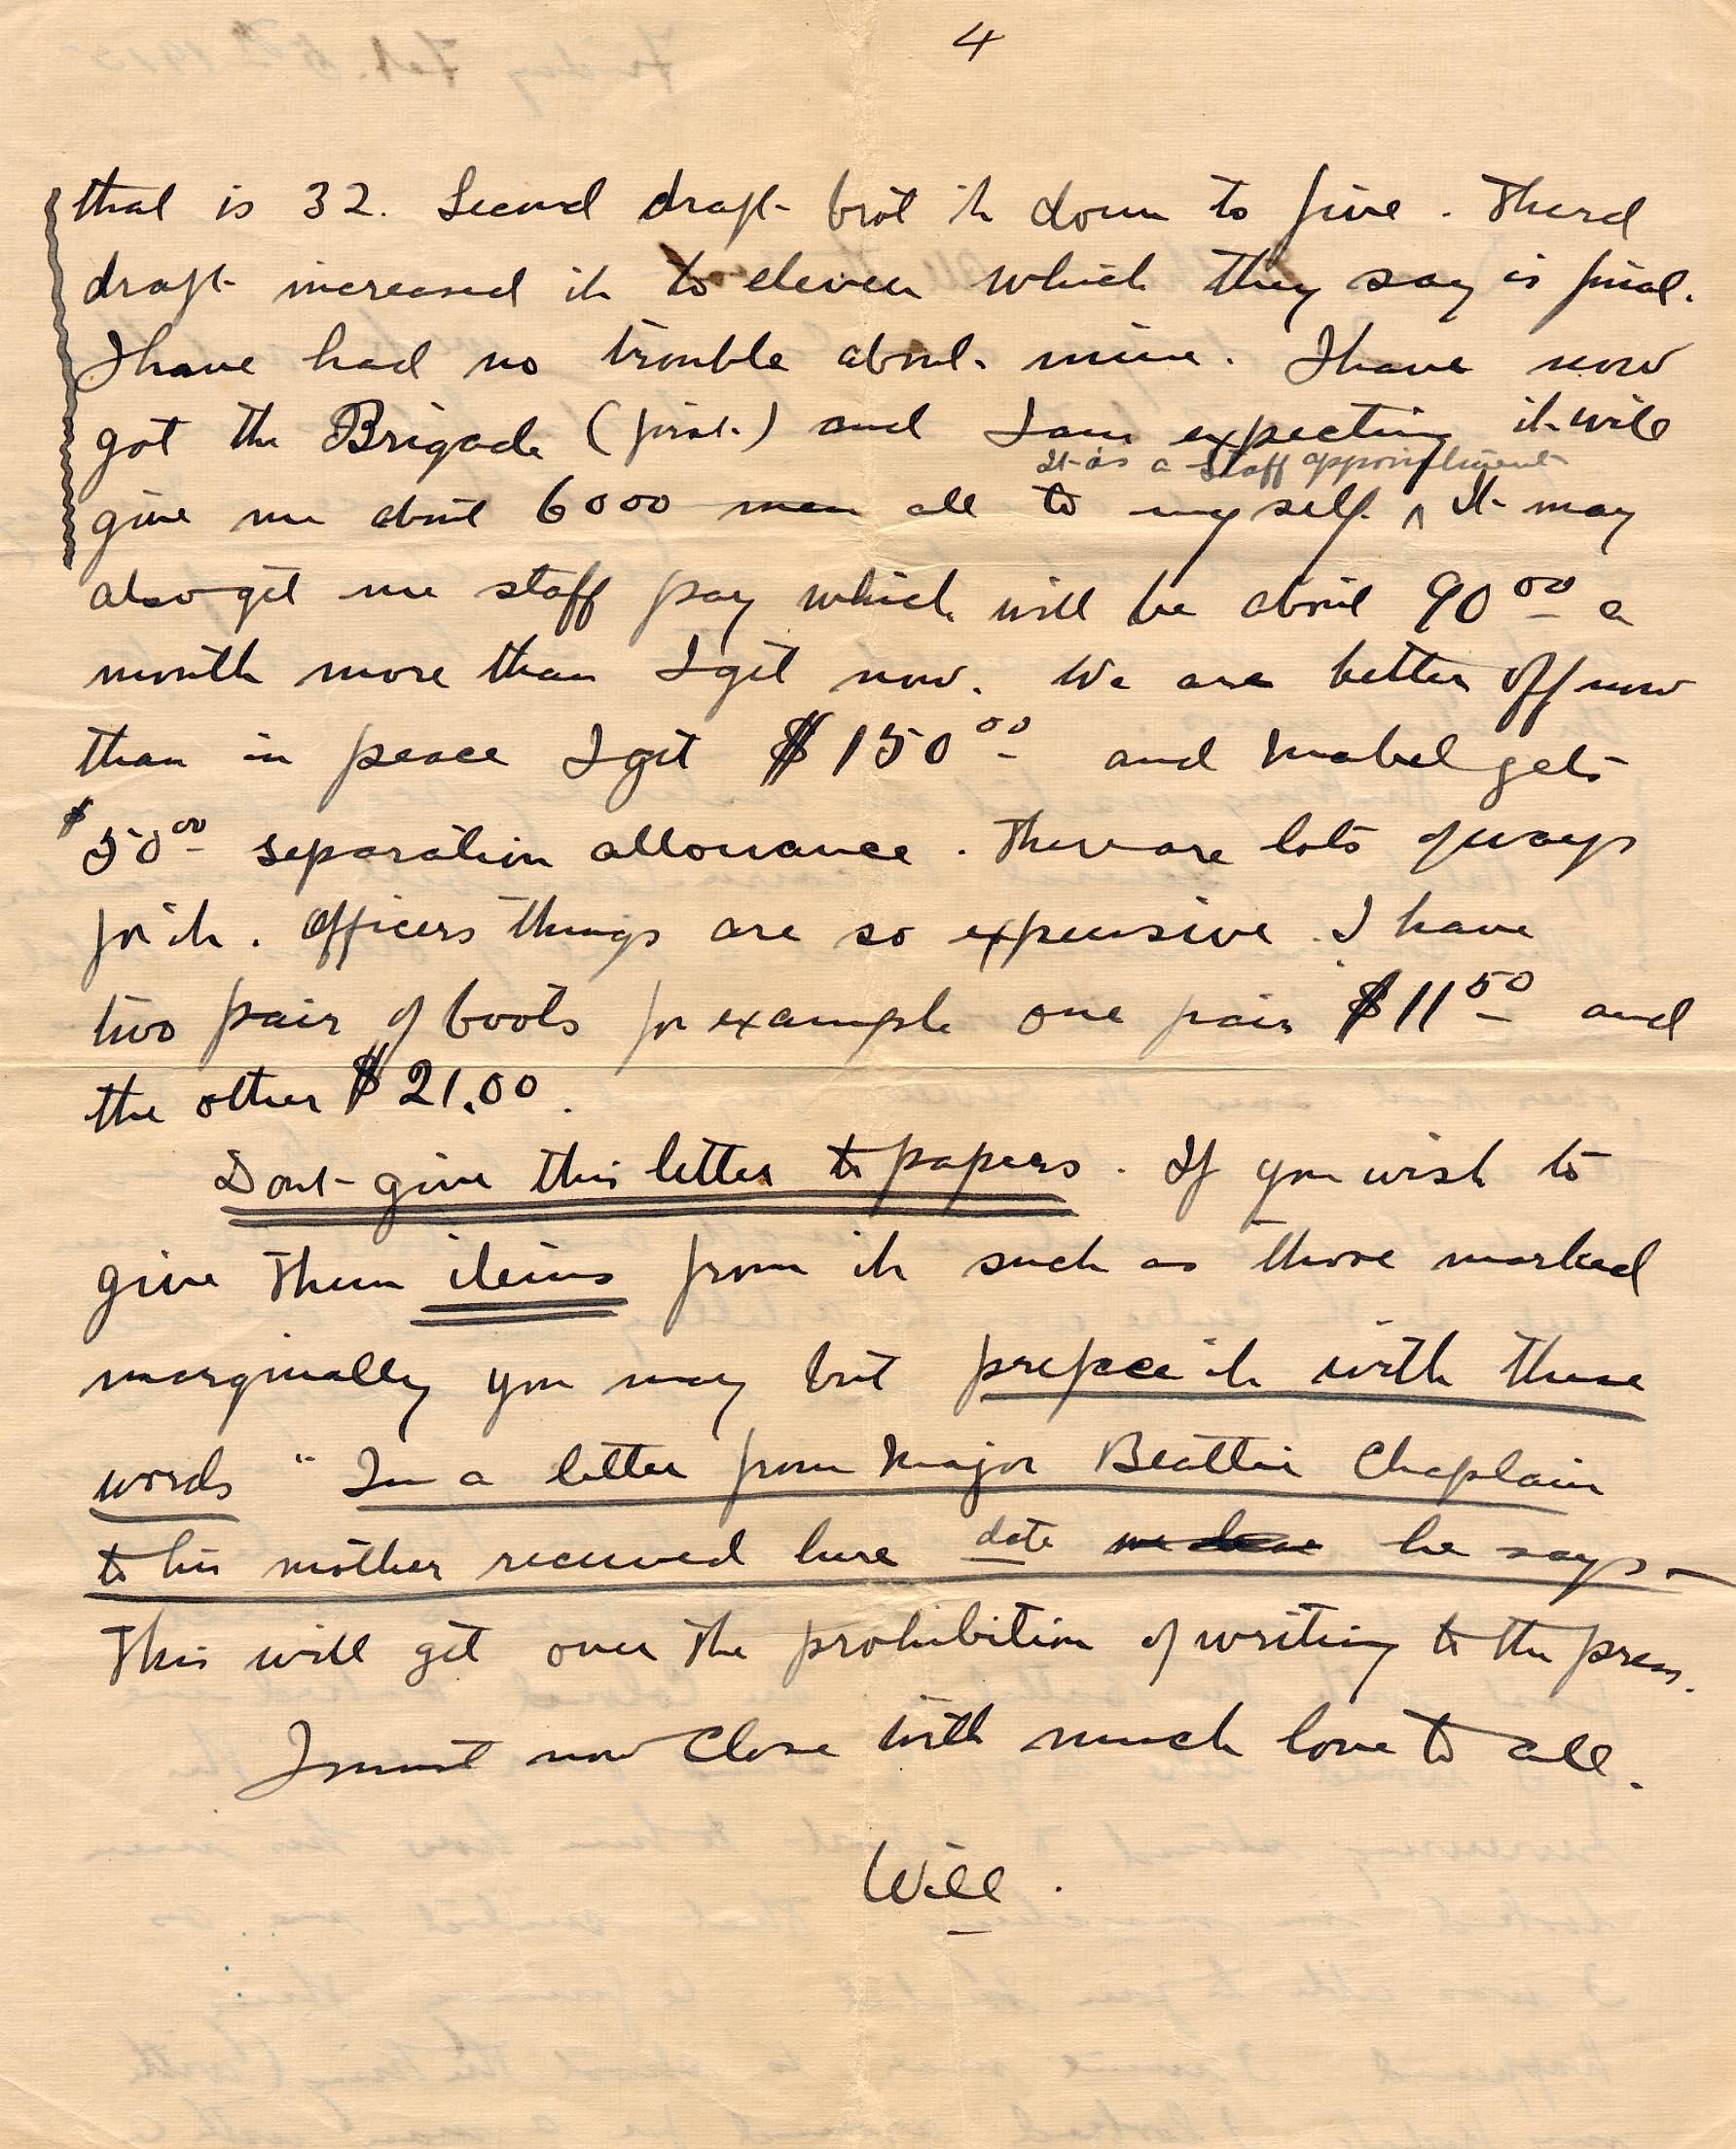 4
that is 32. Second draft brot it down to five. Third
draft increased it to eleven which they say is final.
I have had no trouble about mine. I have now
got the Brigade (first) and I am expecting it will
It is a staff appointment
give me about 6000 men all to myself. ^ It may
also get me staff pay which will be about 90 00 a
month more than I get now. We are better off now
than in peace I get $150 00 and Mabel gets
$50 00 separation allowance. There are lots of ways
for it. Officers things are so expensive. I have
two pair of boots for example one pair $11 50 and
the other $21.00.
Dont give this letter to papers. If you wish to
give them items from it such as those marked
marginally you may but preface it with these
words "In a letter from Major Beattie Chaplain
to his mother received here date he says —
This will get over the prohibition of writing to the press.
I must now close with much love to all.
Will.